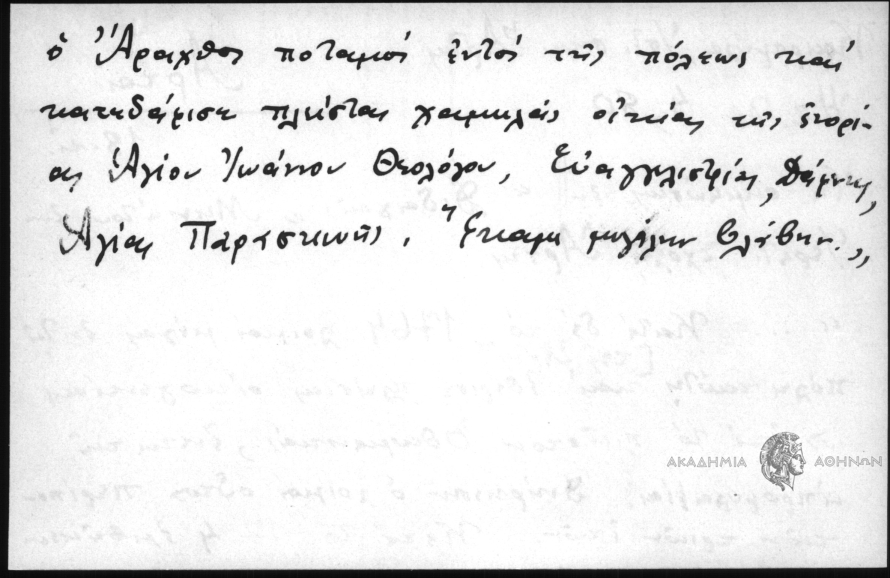 ὁ Ἄραχθος ποταμός ἐντός τῆς πόλεως καί
κατεδάφισε πλείστας χαμηλάς οἰκίας τῆς ἐνορί-
ας Ἁγίου Ἰωάννου Θεολόγου, Εὐαγγελιστρίας,
Ἁγίας Παρασκευῆς. "Ἔκαμε μεγάλην βλάβην.,,
ΑΚΑΔΗΜΙΑ ΑΘΗΝΩΝ